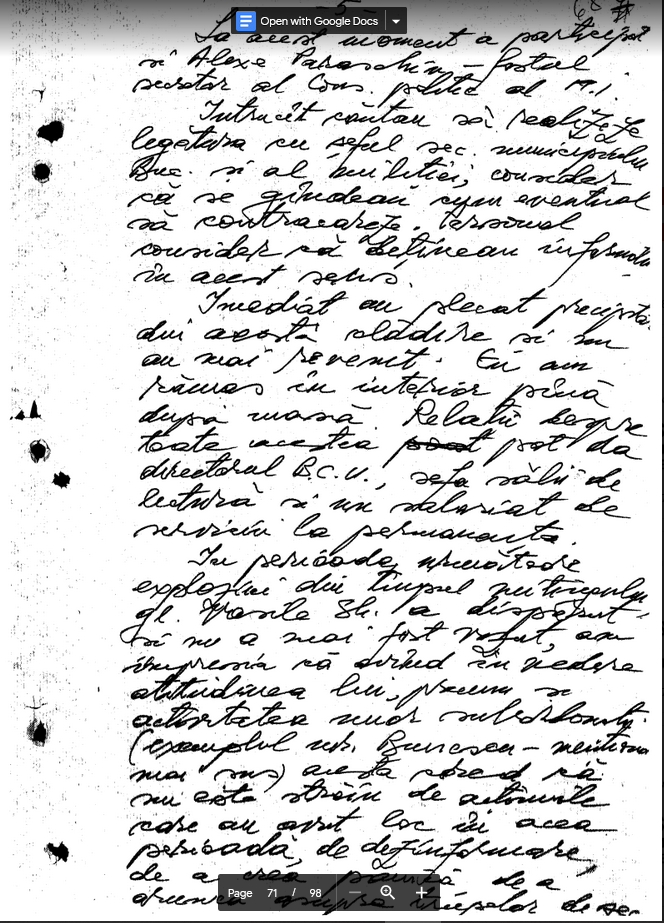 Open with Google Docs
- 5 -
La acest moment a participat
si Alexe Paraschiv - fostul
secretar al Cons. politic al M.I.
Intrucît căutau să realizeze
legătura cu șeful sec. municipiului
Buc. și al miliției, consider
că se gîndeau cum eventual
să contracareze. Personal
consider că dețineau informații
în acest sens.
Imediat au plecat precipita
din această clădire și nu
au mai revenit. Eu am
rămas în interior pînă
după masă. Relații despre
toate acestea pot da
directorul B.C.U., șefa sălii de
lectură și un salariat de
serviciu la permanență.
In perioada următoare
exploziei din timpul mitingului
gl. Vasile Șt. a dispărut
și nu a mai fost văzut, am
impresia că avînd în vedere
atitudinea lui, precum și
activitatea unor subordonați
(exemplul mr. Buncescu - menționa
mai sus) acesta cred că
nu este străin de acțiunile
care au avut loc în acea
perioadă, de dezinformare,
de a crea panică de a
arunca asupra trupelor de se-
Page 71 / 98